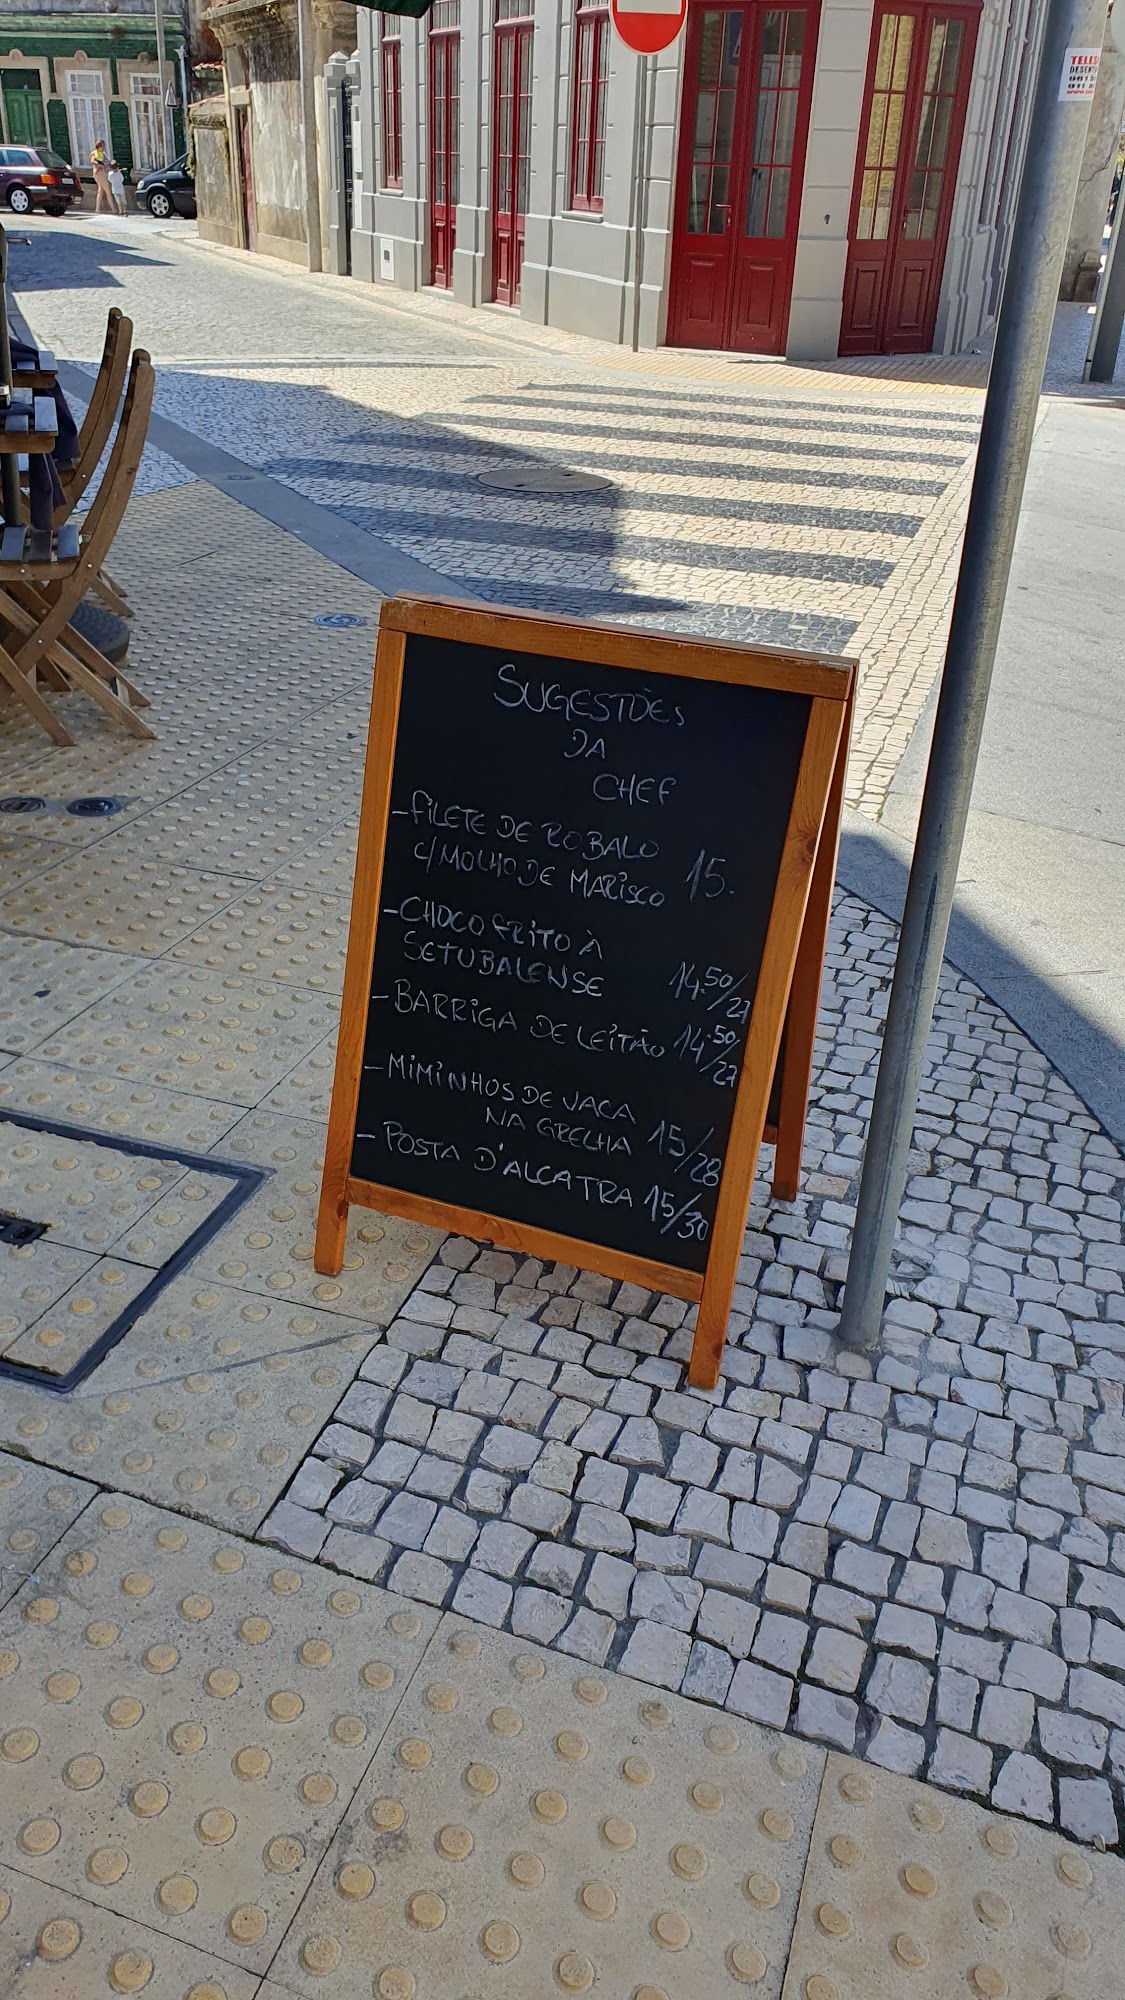 SUGESTÕES
DA
CHEF
- FILETE DE ROBALO
C/MOLHO DE MARISCO 15.
- CHOCO FRITO À
SETUBALENSE 14.50/27
- BARRIGA DE LEITÃO 14.50/27
- MIMINHOS DE VACA
NA GRELHA 15/28
- POSTA D'ALCATRA 15/30